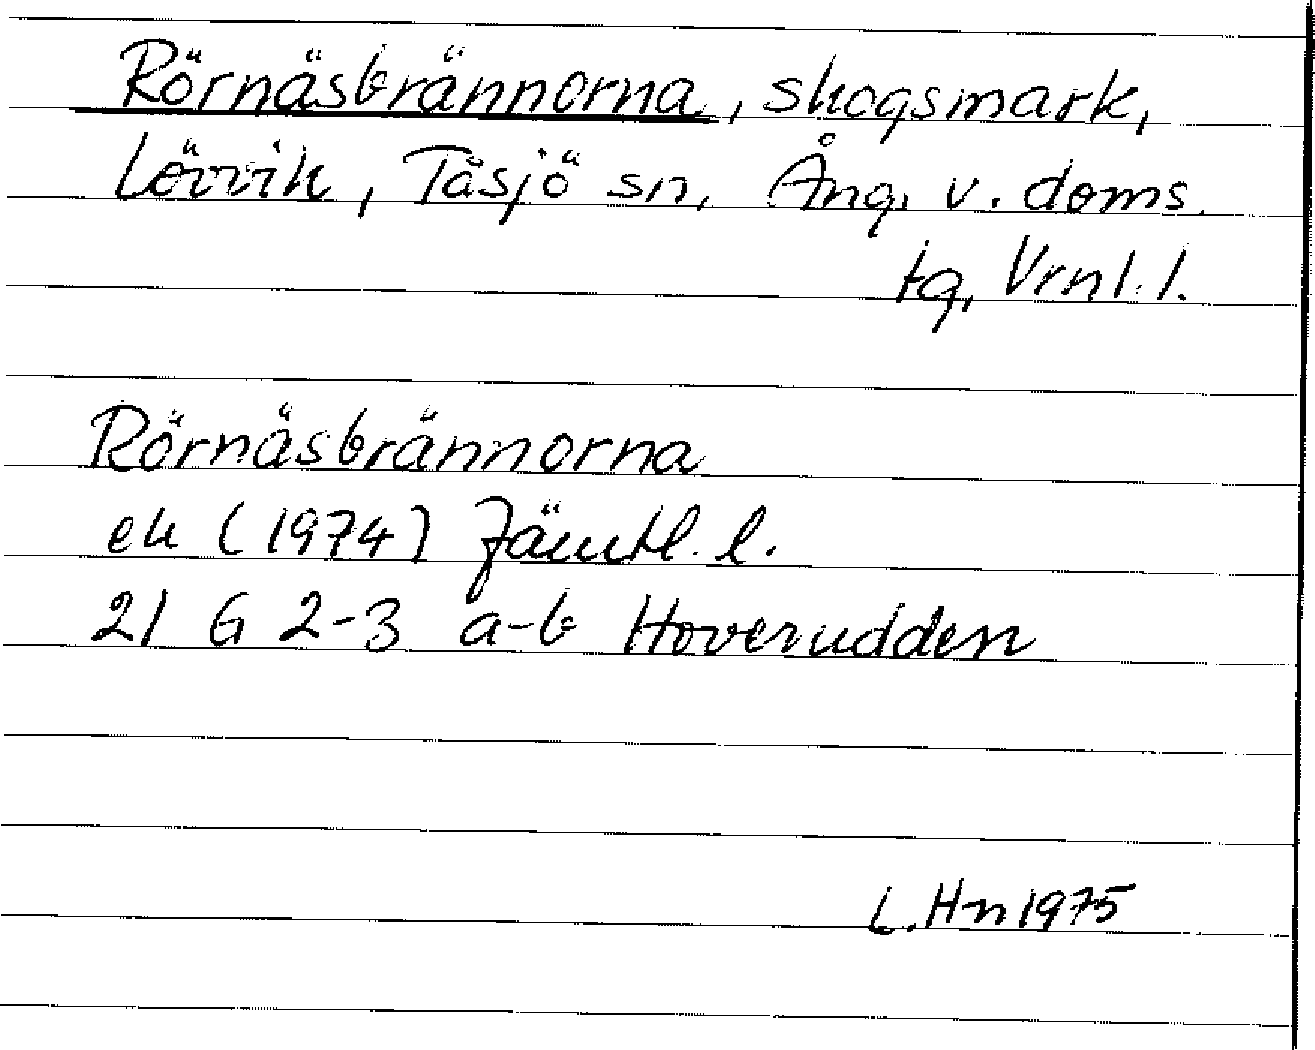 Rörnäsbrännorna, skogsmark,
Lövvik, Tåsjö sn, Ång. v. doms.
tg, Vrnl. l.
Rörnäsbrännorna
ek (1974) Jämtl. l.
21 G 2-3 a-b Hoverudden
L. Hn 1975